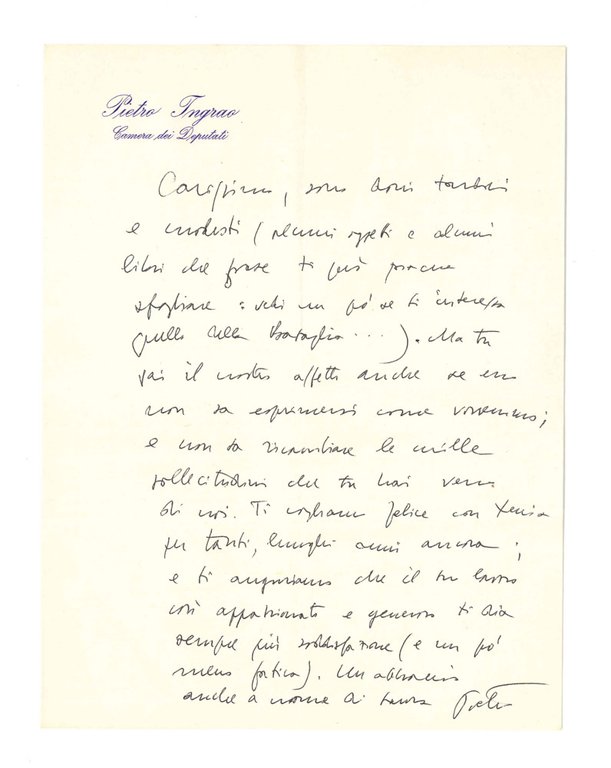 Pietro Ingrao
Camera dei Deputati
Carissimo, sono doni tardivi
e modesti (alcuni oggetti e alcuni
libri che forse ti può piacere
sfogliare: vedi un po' se ti interessa
quello della Battaglia...). Ma tu
sai il nostro affetto anche se esso
non sa esprimersi come vorremmo;
e non sa ricambiare le mille
sollecitudini che tu hai verso
di noi. Ti vogliamo felice con
per tanti, lunghi anni ancora;
e ti auguriamo che il tuo lavoro
così appassionato e generoso ti dia
sempre più soddisfazione (e un po'
meno fatica). Un abbraccio
anche a nome di Laura Pietro